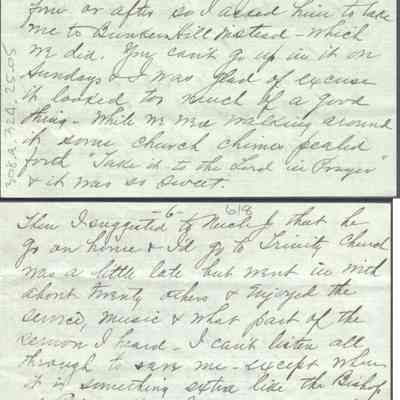 four or after so I asked him to take
me to Bunker Hill instead - which
we did. You can't go up in it on
Sundays & I was glad of excuse
it looked too much of a good
thing - While we were walking around
it some church chimes pealed
forth "Take it to the Lord in Prayer"
& it was so sweet.
-6- 618
Then I suggested to Uncle J. that he
go on home & I'd go to Trinity Church
was a little late but went in with
about twenty others & enjoyed the
service, music & what part of the
sermon I heard - I can't listen all
through to save me - except when
it is something extra like the Bishop